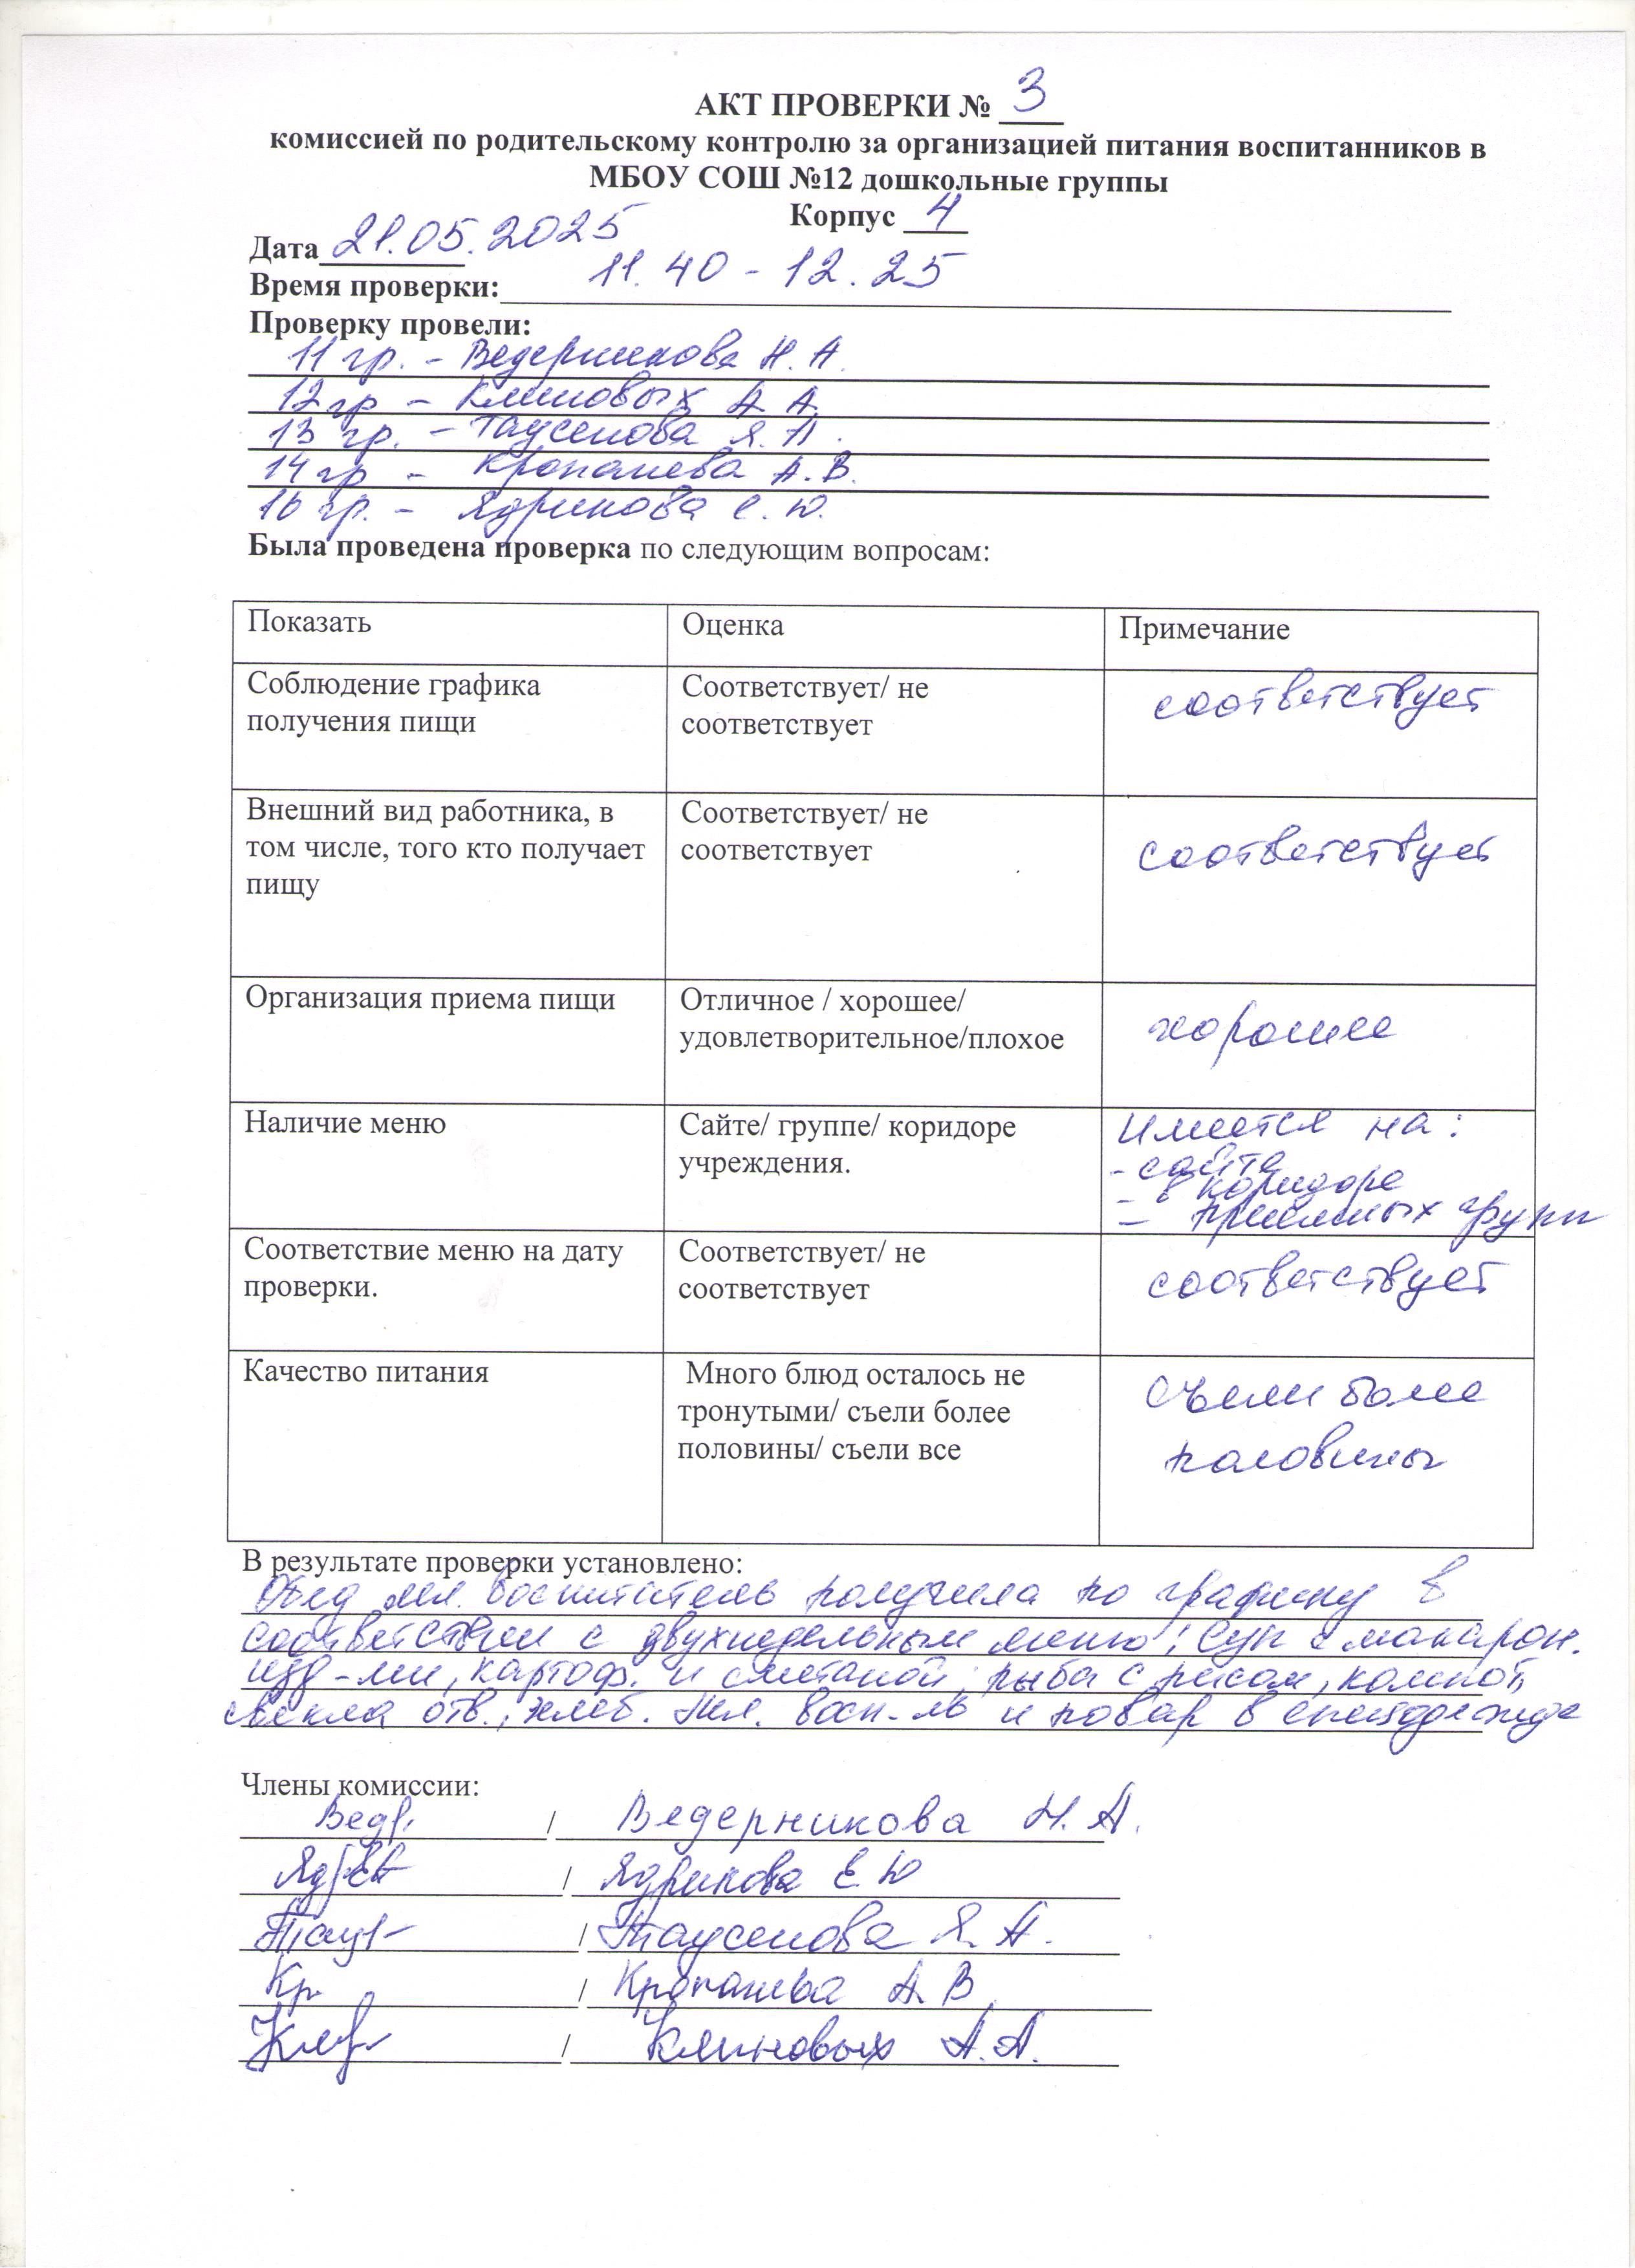 АКТ ПРОВЕРКИ № 3
комиссией по родительскому контролю за организацией питания воспитанников в
МБОУ СОШ №12 дошкольные группы
Корпус 4
Дата 21.05.2025
Время проверки: 11.40 - 12.25
Проверку провели:
11 гр. - Ведерникова Н.А.
12 гр - Клиновых А.А.
13 гр. - Таусенова Я.А.
14 гр - Кропачева А.В.
16 гр. - Ядрикова Е.Ю.
Была проведена проверка по следующим вопросам:
Показать Оценка Примечание
Соблюдение графика Соответствует/ не соответствует
получения пищи соответствует
Внешний вид работника, в Соответствует/ не
том числе, того кто получает соответствует соответствует
пищу
Организация приема пищи Отличное / хорошее/ хорошее
удовлетворительное/плохое
Наличие меню Сайте/ группе/ коридоре Имеется на:
учреждения. - сайте
- в коридоре
- приёмных групп
Соответствие меню на дату Соответствует/ не соответствует
проверки. соответствует
Качество питания Много блюд осталось не съели более
тронутыми/ съели более половины
половины/ съели все
В результате проверки установлено:
Обед мл. воспитатель получила по графику в
соответствии с двухнедельным меню: Суп с макарон.
изд-ми, картоф. и сметаной, рыба с рисом, компот,
свекла отв., хлеб. Мл. восп-ль и повар в спецодежде
Члены комиссии:
Ведр. / Ведерникова Н.А.
/ Ядрикова Е.Ю
/ Таусенова Я.А.
Кр. / Кропачева А.В
/ Клиновых А.А.